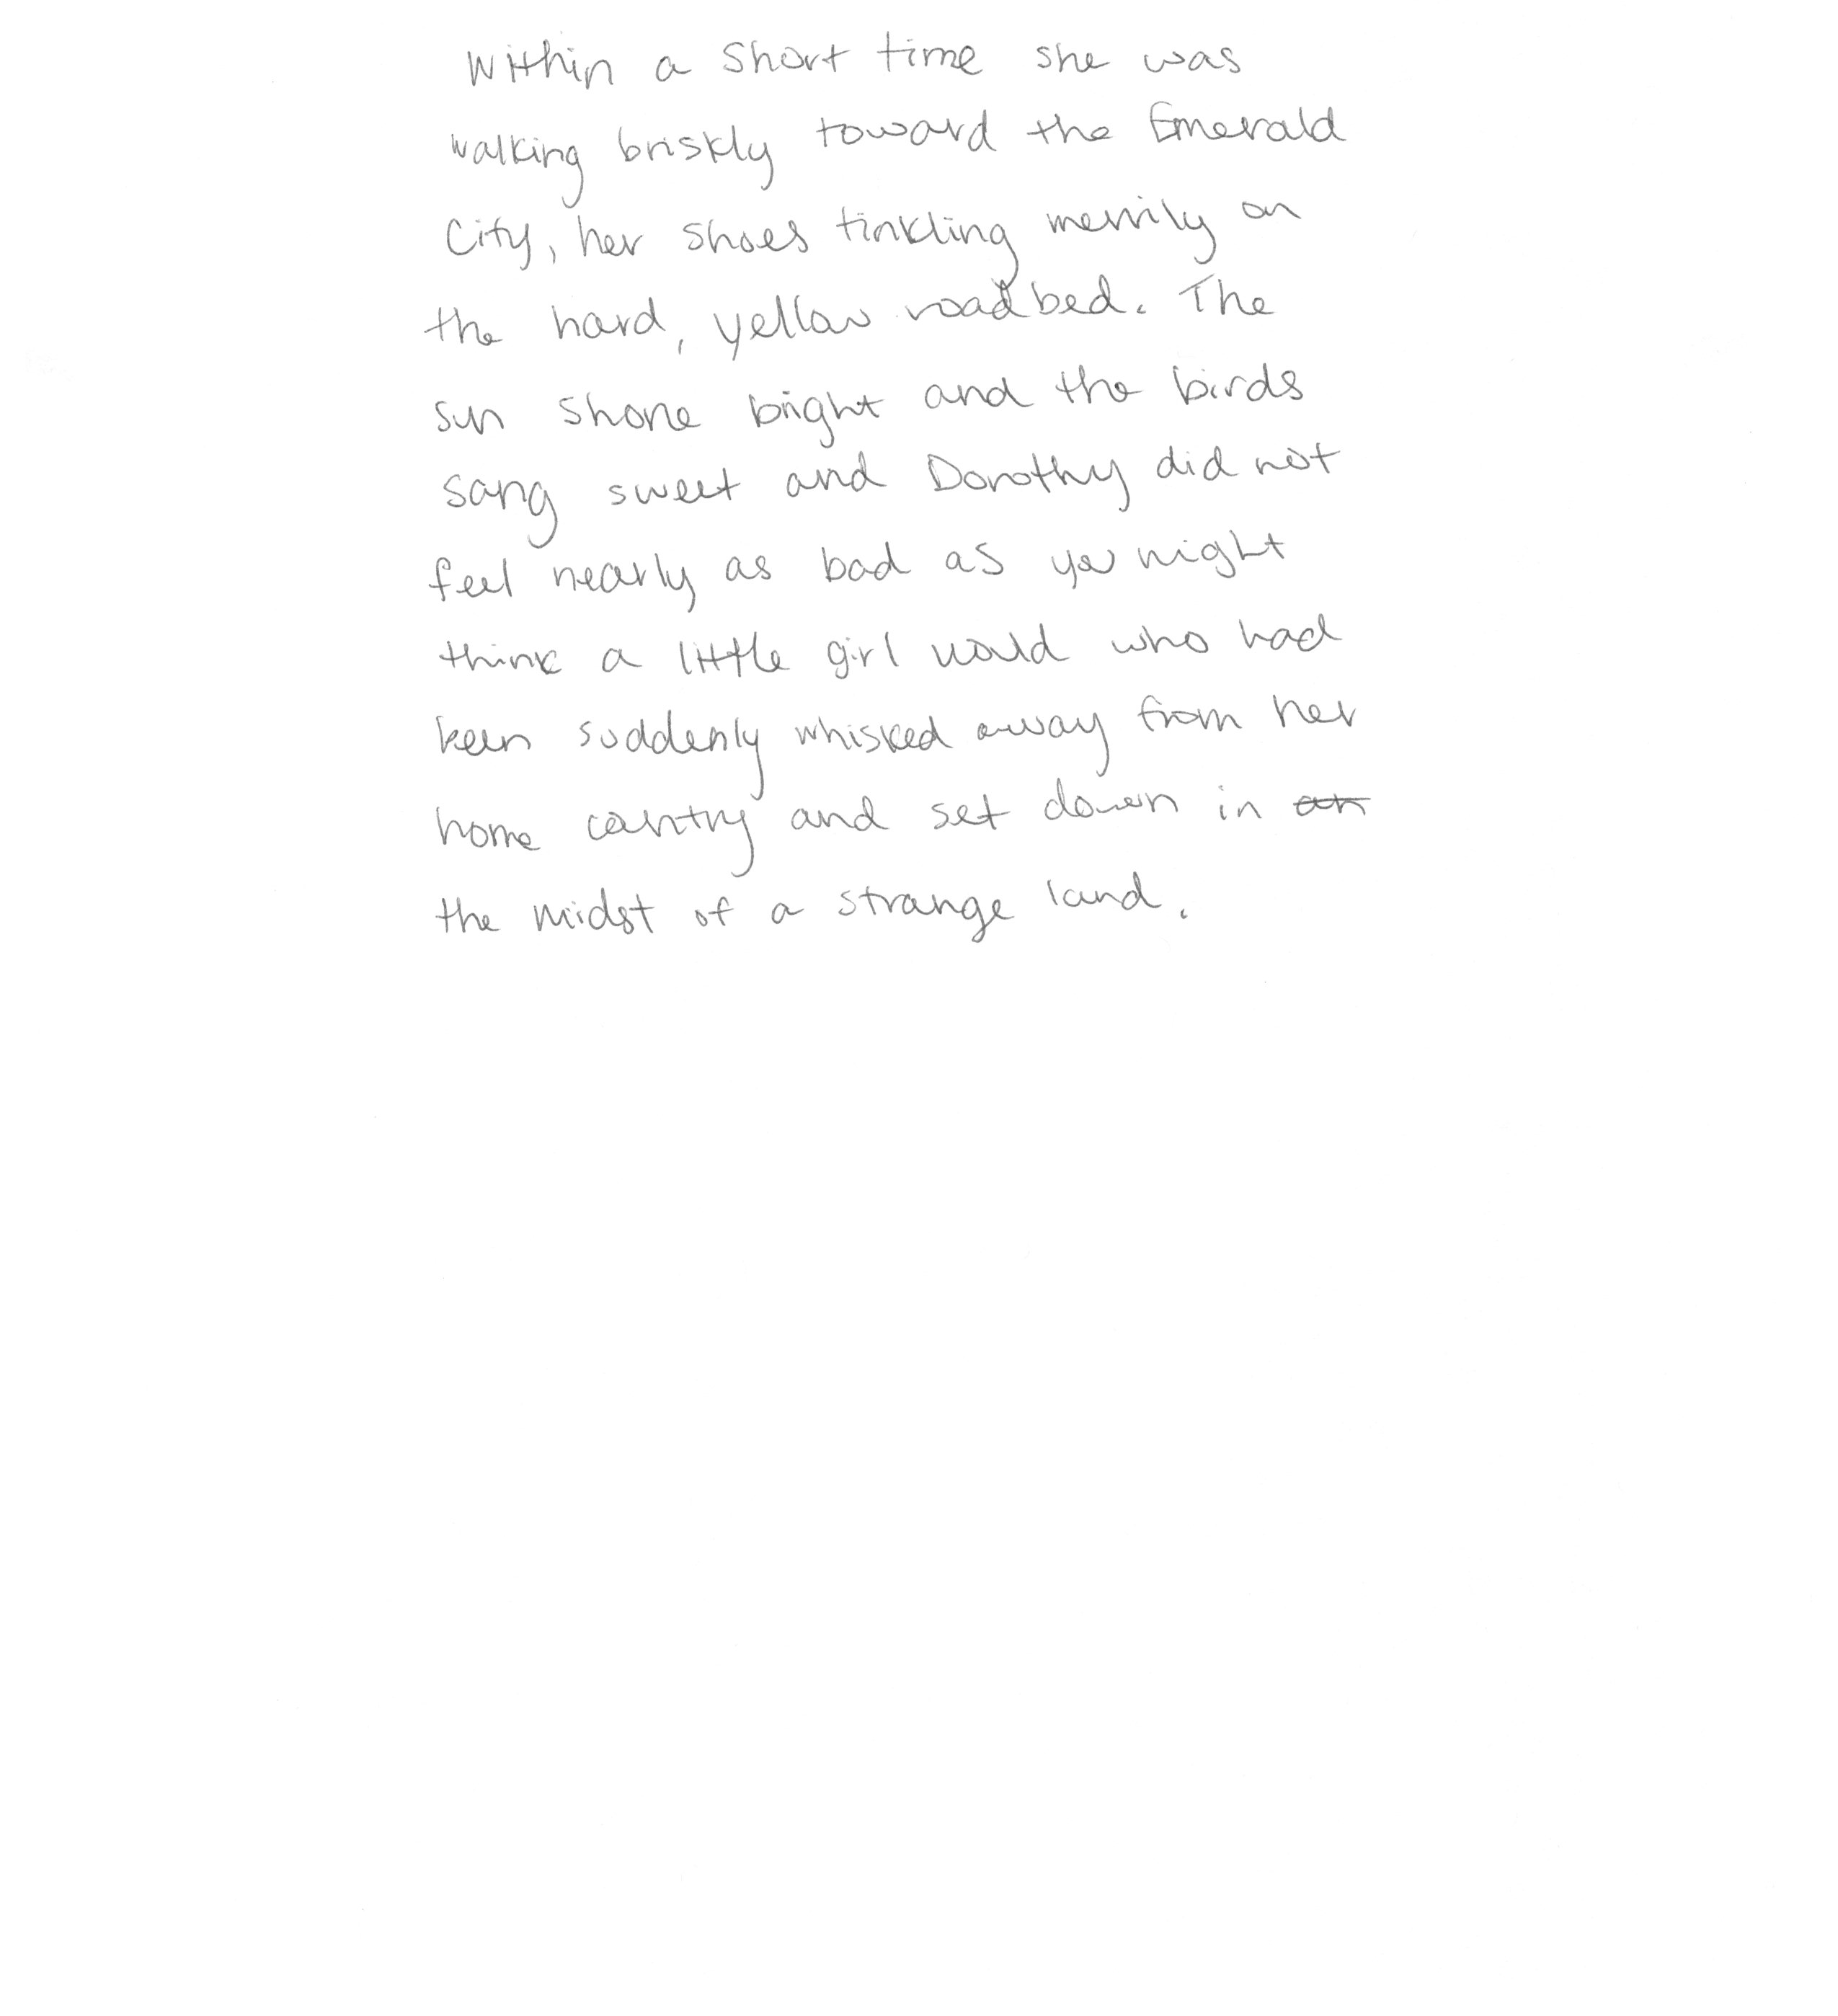 Within a short time she was
walking briskly toward the Emerald
City, her shoes tinkling merrily on
the hard, yellow roadbed. The
sun shone bright and the birds
sang sweet and Dorothy did not
feel nearly as bad as you might
think a little girl would who had
been suddenly whisked away from her
home country and set down in an
the midst of a strange land.